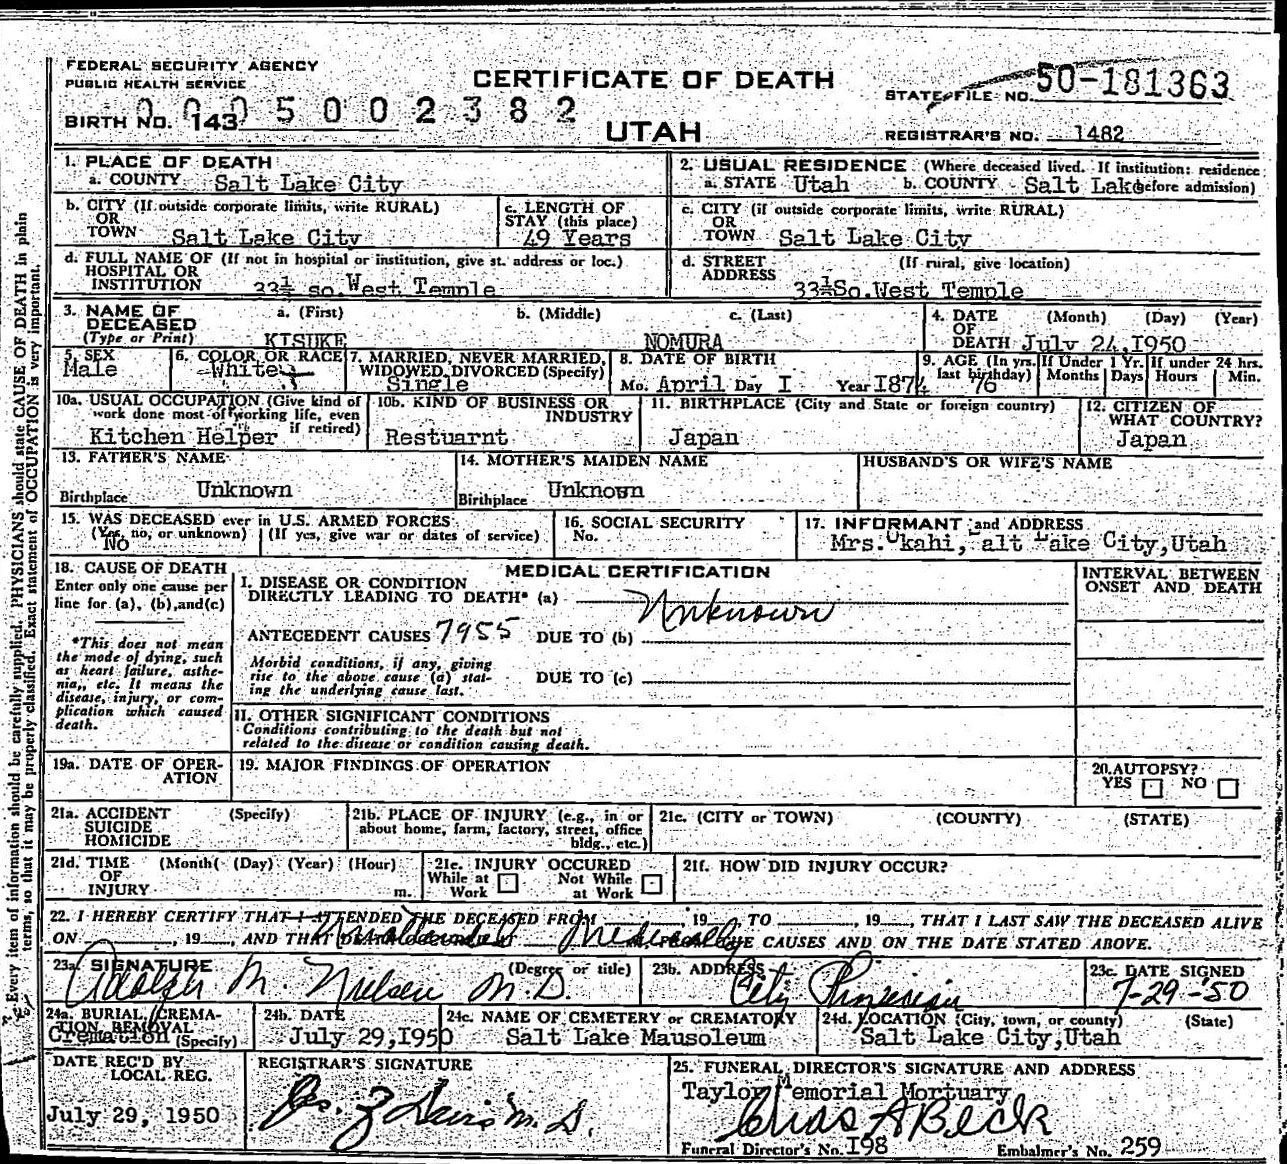 FEDERAL SECURITY AGENCY
PUBLIC HEALTH SERVICE
CERTIFICATE OF DEATH
STATE FILE NO. 50-181363
0005002382
BIRTH NO. 143
UTAH
REGISTRAR'S NO. 1482
1. PLACE OF DEATH
a. COUNTY Salt Lake City
2. USUAL RESIDENCE (Where deceased lived. If institution: residence before admission)
a. STATE Utah b. COUNTY Salt Lake
b. CITY (If outside corporate limits, write RURAL)
OR
TOWN Salt Lake City
c. LENGTH OF
STAY (this place)
49 Years
c. CITY (if outside corporate limits, write RURAL)
OR
TOWN Salt Lake City
d. FULL NAME OF (If not in hospital or institution, give st. address or loc.)
HOSPITAL OR
INSTITUTION 33½ so.West Temple
d. STREET (If rural, give location)
ADDRESS
33½So.West Temple
3. NAME OF a. (First) b. (Middle) c. (Last)
DECEASED
(Type or Print) KISUKE NOMURA
4. DATE (Month) (Day) (Year)
OF
DEATH July 24,1950
5. SEX
Male
6. COLOR OR RACE
White
7. MARRIED, NEVER MARRIED,
WIDOWED, DIVORCED (Specify)
Single
8. DATE OF BIRTH
Mo. April Day I Year I874
9. AGE (In yrs.
last birthday)
76
If Under 1 Yr.
Months Days
If under 24 hrs.
Hours Min.
10a. USUAL OCCUPATION (Give kind of
work done most of working life, even
if retired)
Kitchen Helper
10b. KIND OF BUSINESS OR
INDUSTRY
Restuarnt
11. BIRTHPLACE (City and State or foreign country)
Japan
12. CITIZEN OF
WHAT COUNTRY?
Japan
13. FATHER'S NAME
Unknown
Birthplace
14. MOTHER'S MAIDEN NAME
Unknown
Birthplace
HUSBAND'S OR WIFE'S NAME
15. WAS DECEASED ever in U.S. ARMED FORCES
(Yes, no, or unknown) (If yes, give war or dates of service)
No
16. SOCIAL SECURITY
No.
17. INFORMANT and ADDRESS
Mrs. Ukahi, alt Lake City,Utah
18. CAUSE OF DEATH
Enter only one cause per
line for (a), (b),and(c)
*This does not mean
the mode of dying, such
as heart failure, asthe-
nia,, etc. It means the
disease, injury, or com-
plication which caused
death.
MEDICAL CERTIFICATION
I. DISEASE OR CONDITION
DIRECTLY LEADING TO DEATH* (a) Unknown
ANTECEDENT CAUSES 7955 DUE TO (b)
Morbid conditions, if any, giving
rise to the above cause (a) stat-
ing the underlying cause last.
DUE TO (c)
II. OTHER SIGNIFICANT CONDITIONS
Conditions contributing to the death but not
related to the disease or condition causing death.
INTERVAL BETWEEN
ONSET AND DEATH
19a. DATE OF OPER-
ATION
19. MAJOR FINDINGS OF OPERATION
20.AUTOPSY?
YES NO
21a. ACCIDENT (Specify)
SUICIDE
HOMICIDE
21b. PLACE OF INJURY (e.g., in or
about home, farm, factory, street, office
bldg., etc.)
21c. (CITY or TOWN) (COUNTY) (STATE)
21d. TIME (Month( (Day) (Year) (Hour)
OF
INJURY m.
21e. INJURY OCCURED
While at Work
Not While at Work
21f. HOW DID INJURY OCCUR?
22. I HEREBY CERTIFY THAT I ATTENDED THE DECEASED FROM , 19 TO , 19 , THAT I LAST SAW THE DECEASED ALIVE
ON , 19 , AND THAT DEATH OCCURRED THE CAUSES AND ON THE DATE STATED ABOVE.
Unattended Medically
23a. SIGNATURE (Degree or title)
Adolph M. Nielsen M.D.
23b. ADDRESS
City Physician
23c. DATE SIGNED
7-29-'50
24a. BURIAL, CREMA-
TION, REMOVAL
(Specify)
Cremation
24b. DATE
July 29,1950
24c. NAME OF CEMETERY or CREMATORY
Salt Lake Mausoleum
24d. LOCATION (City, town, or county) (State)
Salt Lake City,Utah
DATE REC'D BY
LOCAL REG.
July 29, 1950
REGISTRAR'S SIGNATURE
25. FUNERAL DIRECTOR'S SIGNATURE AND ADDRESS
Taylor Memorial Mortuary
Chas A Beck
Funeral Director's No. I98 Embalmer's No. 259
Every item of information should be carefully supplied. PHYSICIANS should state CAUSE OF DEATH in plain
terms, so that it may be properly classified. Exact statement of OCCUPATION is very important.